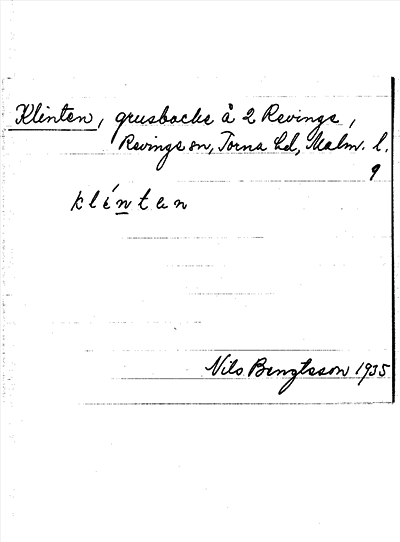 Klinten, grusbacke å 2 Revinge,
Revinge sn, Torna hd, Malm. l.
9
klíntan
Nils Bengtsson 1935